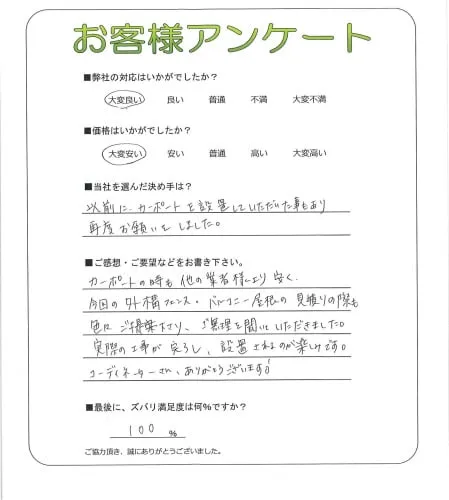 お客様アンケート
■弊社の対応はいかがでしたか？
大変良い 良い 普通 不満 大変不満
■価格はいかがでしたか？
大変安い 安い 普通 高い 大変高い
■当社を選んだ決め手は？
以前に、カーポートを設置していただいた事もあり
再度お願いをしました。
■ご感想・ご要望などをお書き下さい。
カーポートの時も他の業者様より安く、
今回の外構フェンス・バルコニー屋根の見積りの際も
色々ご提案下さり、ご無理を聞いていただきました。
実際の工事が完了し、設置されるのが楽しみです。
コーディネーターさん、ありがとうございます!
■最後に、ズバリ満足度は何%ですか？
100 %
ご協力頂き、誠にありがとうございました。